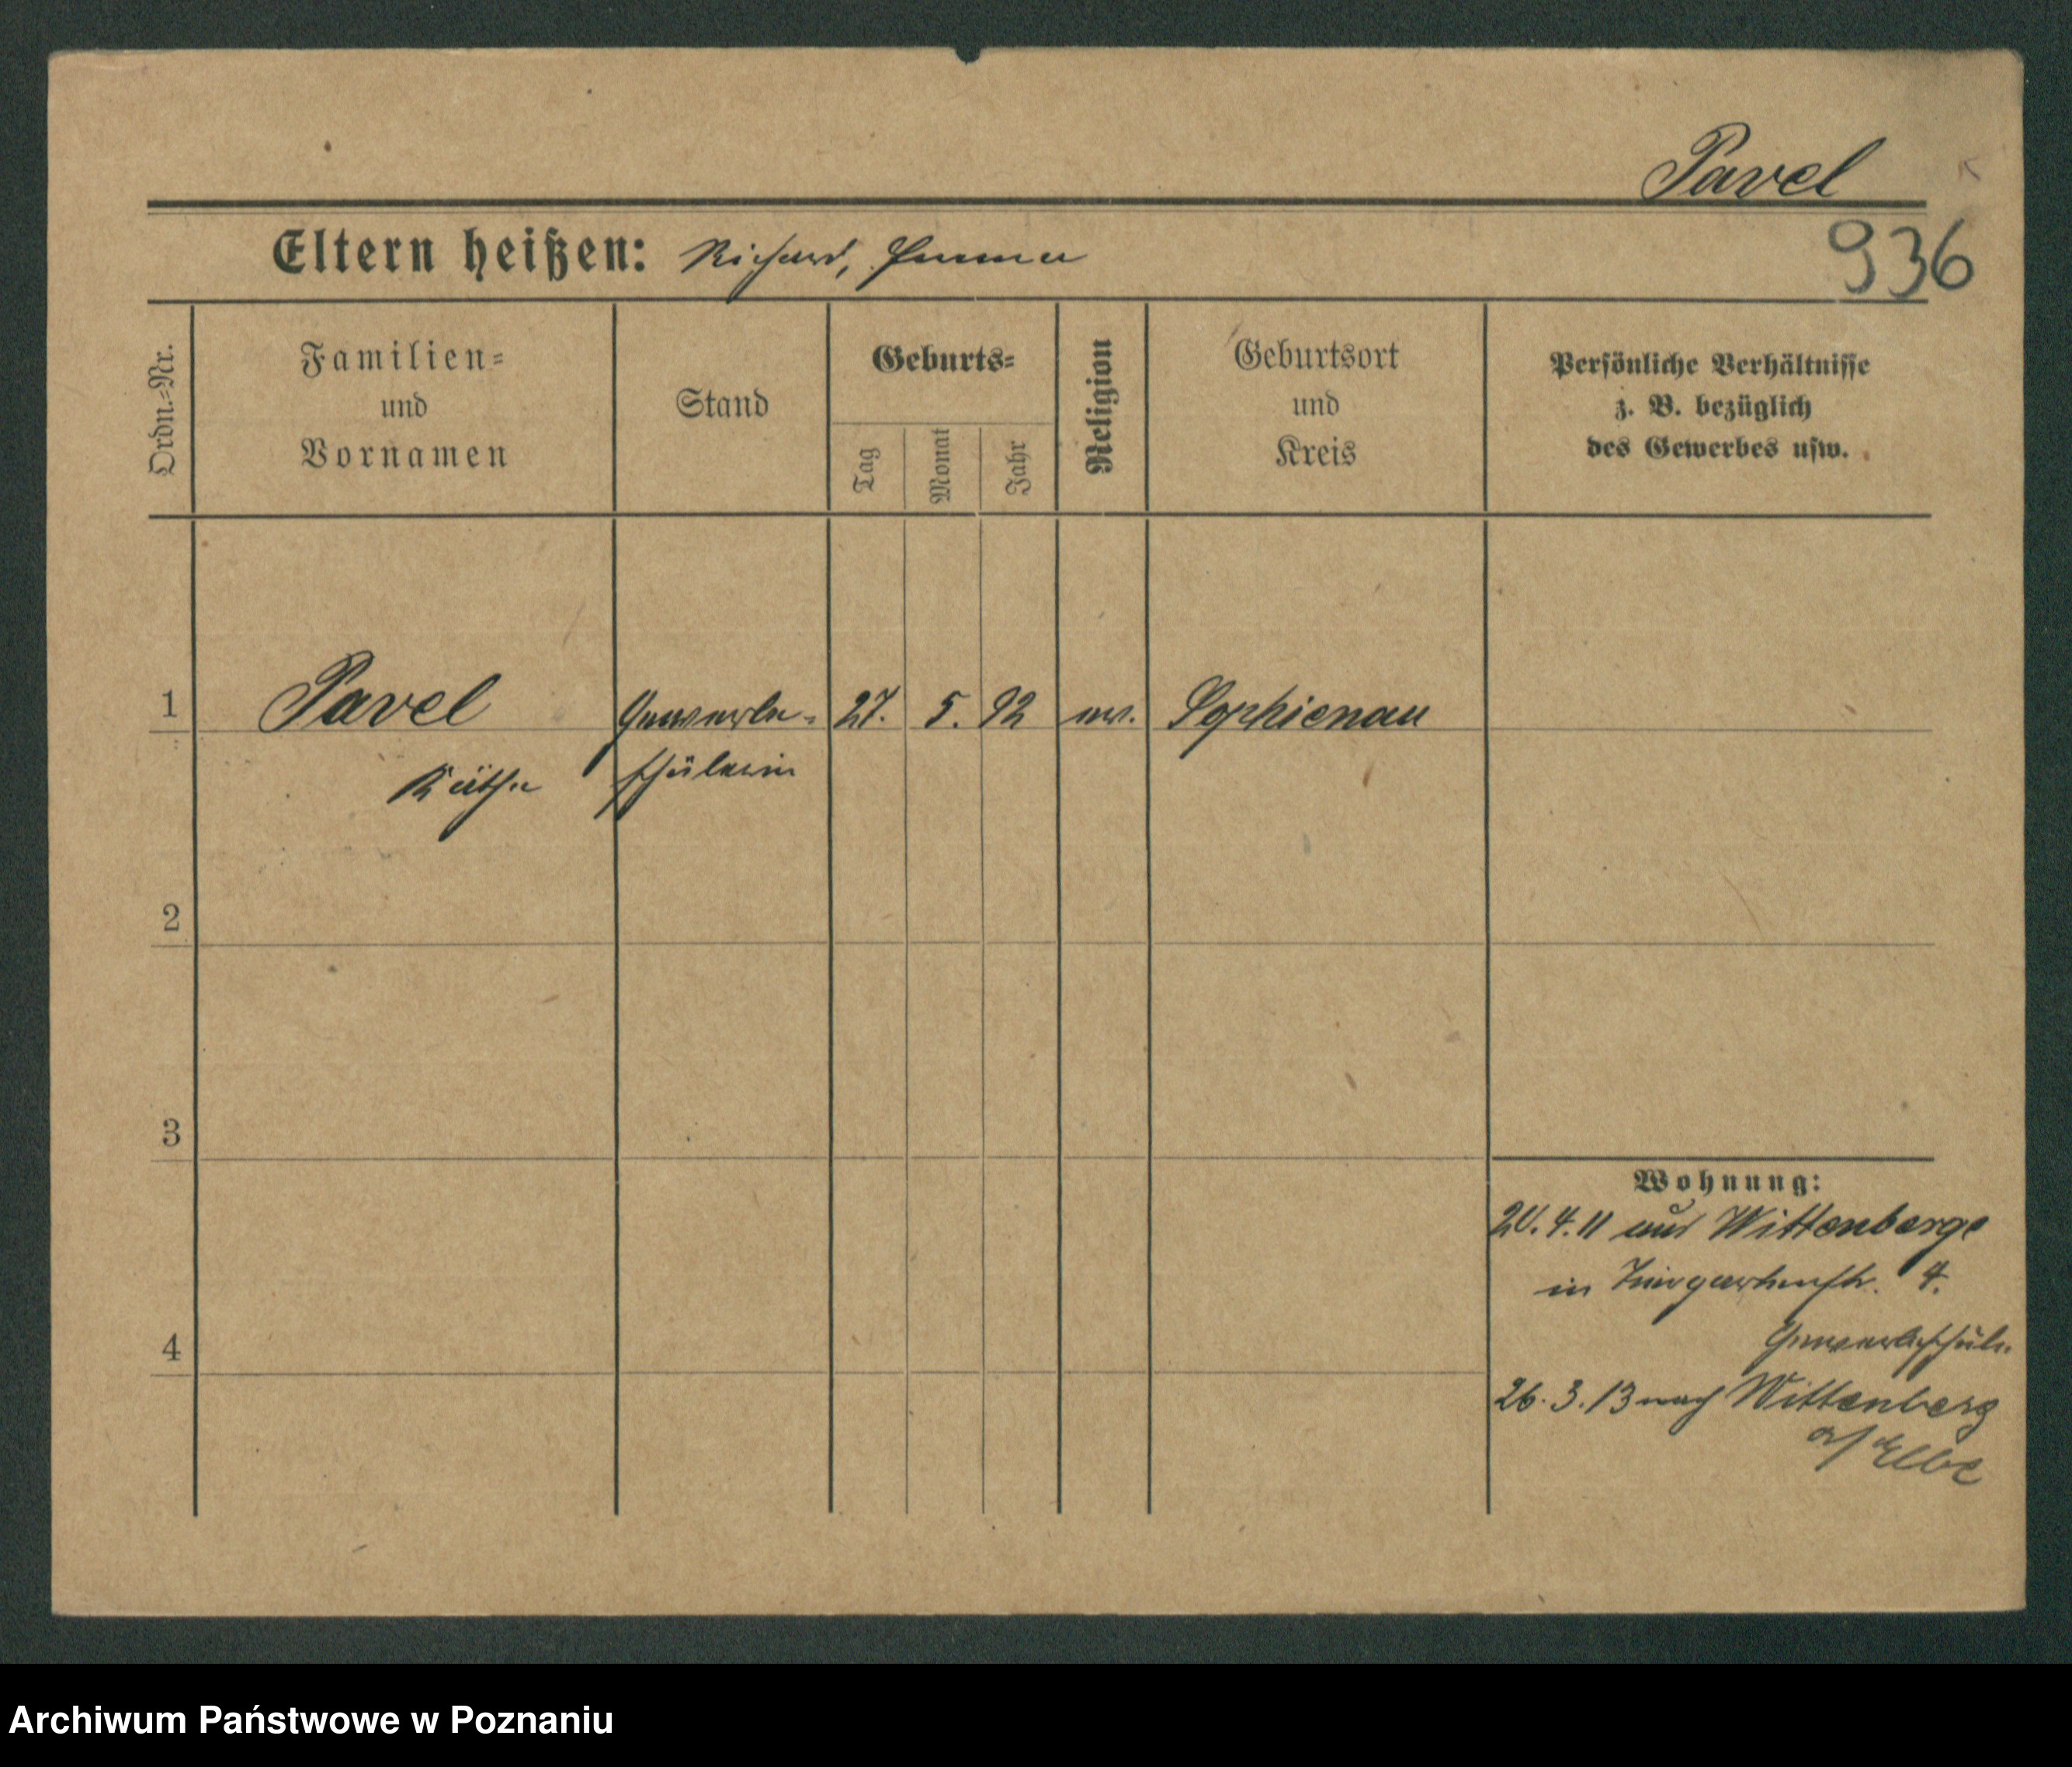 Pavel
Eltern heißen: Richard, Emma
936
Ordn.=Nr.
Familien=
und
Vornamen
Stand
Geburts=
Tag
Monat
Jahr
Religion
Geburtsort
und
Kreis
Persönliche Verhältnisse
z. B. bezüglich
des Gewerbes usw.
1 Pavel Gewerbe= 27. 5. 92 ev. Sophienau
Käthe schülerin
2
3
Wohnung:
20.4.11 aus Wittenberge
in Tiergartenstr. 4.
Gewerbeschule
4
26.3.13 nach Wittenberg
a/Elbe
Archiwum Państwowe w Poznaniu